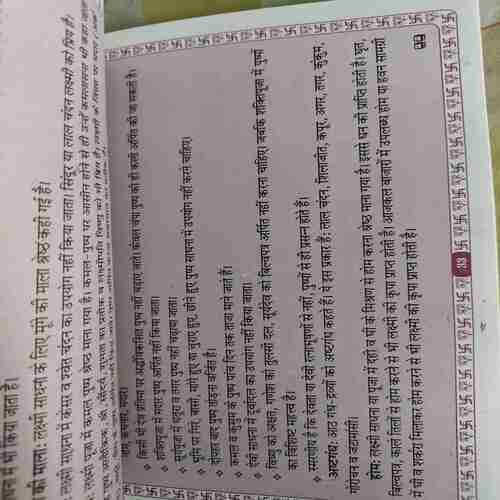 जाता है।
की माला: लक्ष्मी साधना के लिए मूंगे की माला श्रेष्ठ कही गई है।
लक्ष्मी साधना में केसर व श्वेत चंदन का उपयोग नहीं किया जाता। सिंदूर या लाल चंदन लक्ष्मी को प्रिय है।
लक्ष्मी पूजा में कमल पुष्प श्रेष्ठ माना गया है। कमल-पुष्प पर आसीन होने से ही उन्हें कमलासना भी कहा जाता
किसी भी देव प्रतिमा पर अर्द्धविकसित पुष्प नहीं चढ़ाए जाते। केवल चंपा पुष्प को ही कली अर्पित की जा सकती है।
शक्तिपूजा में मदार पुष्प अर्पित नहीं किया जाता।
सूर्यपूजा में धतूरा व तगर पुष्प नहीं चढ़ाया जाता।
भूमि पर गिरे, बासी, मांगे हुए या चुराए हुए, छीने हुए पुष्प साधना में उपयोग नहीं करने चाहिए।
दोपहर बाद पुष्प तोड़ना वर्जित है।
कमल व कुमुद के पुष्प पांच दिन तक ताजा माने जाते हैं।
देवी साधना में दूर्वादल का उपयोग नहीं किया जाता।
विष्णु को अक्षत, गणेश को तुलसी दल, सूर्यदेव को बिल्वपत्र अर्पित नहीं करना चाहिए। जबकि शक्तिपूजा में पुष्पों
का विशिष्ट महत्व है।
स्मरणीय है कि देवता या देवी रत्नाभूषणों से नहीं, पुष्पों से ही प्रसन्न होते हैं।
अष्टगंध: आठ गंध-द्रव्यों को अष्टगंध कहते हैं। ये इस प्रकार हैं: लाल चंदन, शिलाजीत, कपूर, अगर, तगर, कुंकुम,
गोरोचन व जटामांसी।
होम: लक्ष्मी साधना या पूजा में दही व घी के मिश्रण से होम करना श्रेष्ठ माना गया है। इससे धन की प्राप्ति होती है। घृत,
बिल्वपत्र, काले तिलों से होम करने से भी लक्ष्मी की कृपा प्राप्त होती है। आजकल बाजारों में उपलब्ध होम या हवन सामग्री
में घी व शर्करा मिलाकर होम करने से भी लक्ष्मी की कृपा प्राप्त होती है।
33